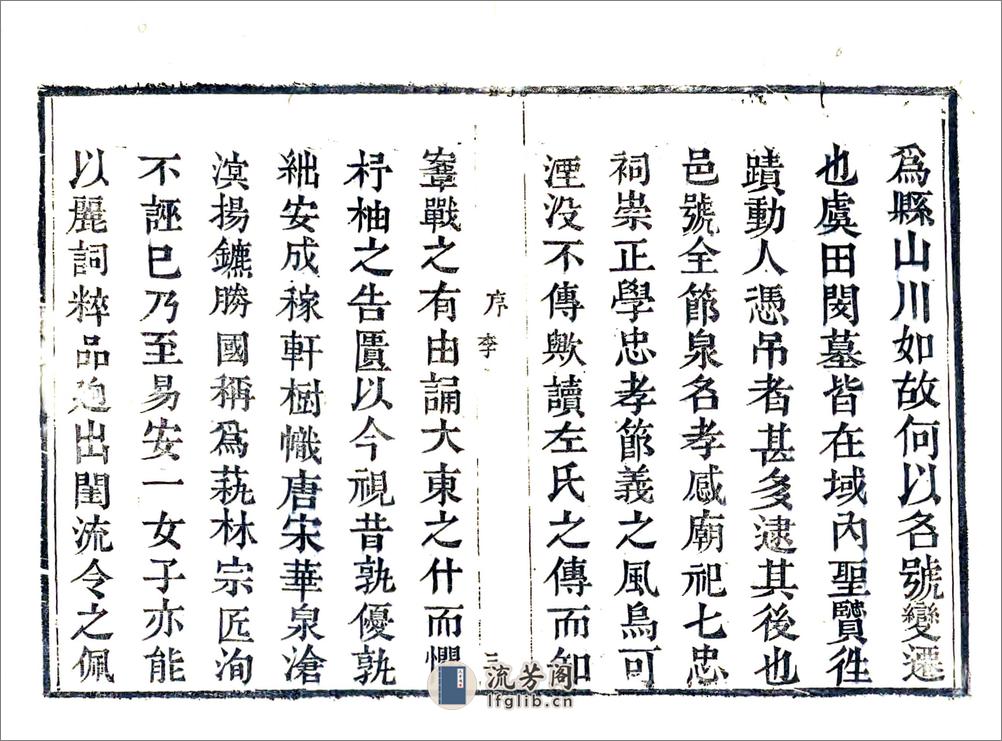 爲縣山川如故何以名號變遷
也虞田閔墓皆在域內聖賢徃
蹟動人憑吊者甚多逮其後也
邑號全節泉名孝感廟祀七忠
祠崇正學忠孝節義之風烏可
湮没不傳歟讀左氏之傳而知
序 李 三
鞌戰之有由誦大東之什而懼
杼柚之告匱以今視昔孰優孰
絀安成稼軒樹幟唐宋華泉滄
溟揚鑣勝國稱爲藝林宗匠洵
不誣已乃至易安一女子亦能
以麗詞粹品逈出閨流令之佩
流芳阁
lfglib.cn